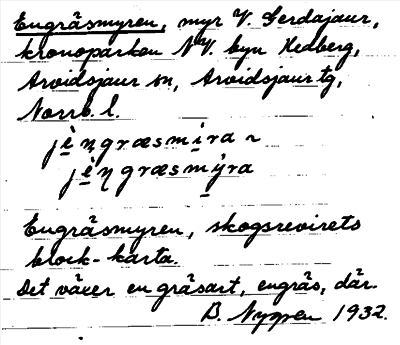 Engräsmyren, myr V. Gerdajaur,
kronoparken NV. byn Hedberg,
Arvidsjaur sn, Arvidsjaur tg,
Norrb. l.
jèŋgræsmira ~
jèŋgræsmyra
Engräsmyren, skogsrevirets
block-karta.
Det växer en gräsart, engräs, där.
B. Nygren 1932.